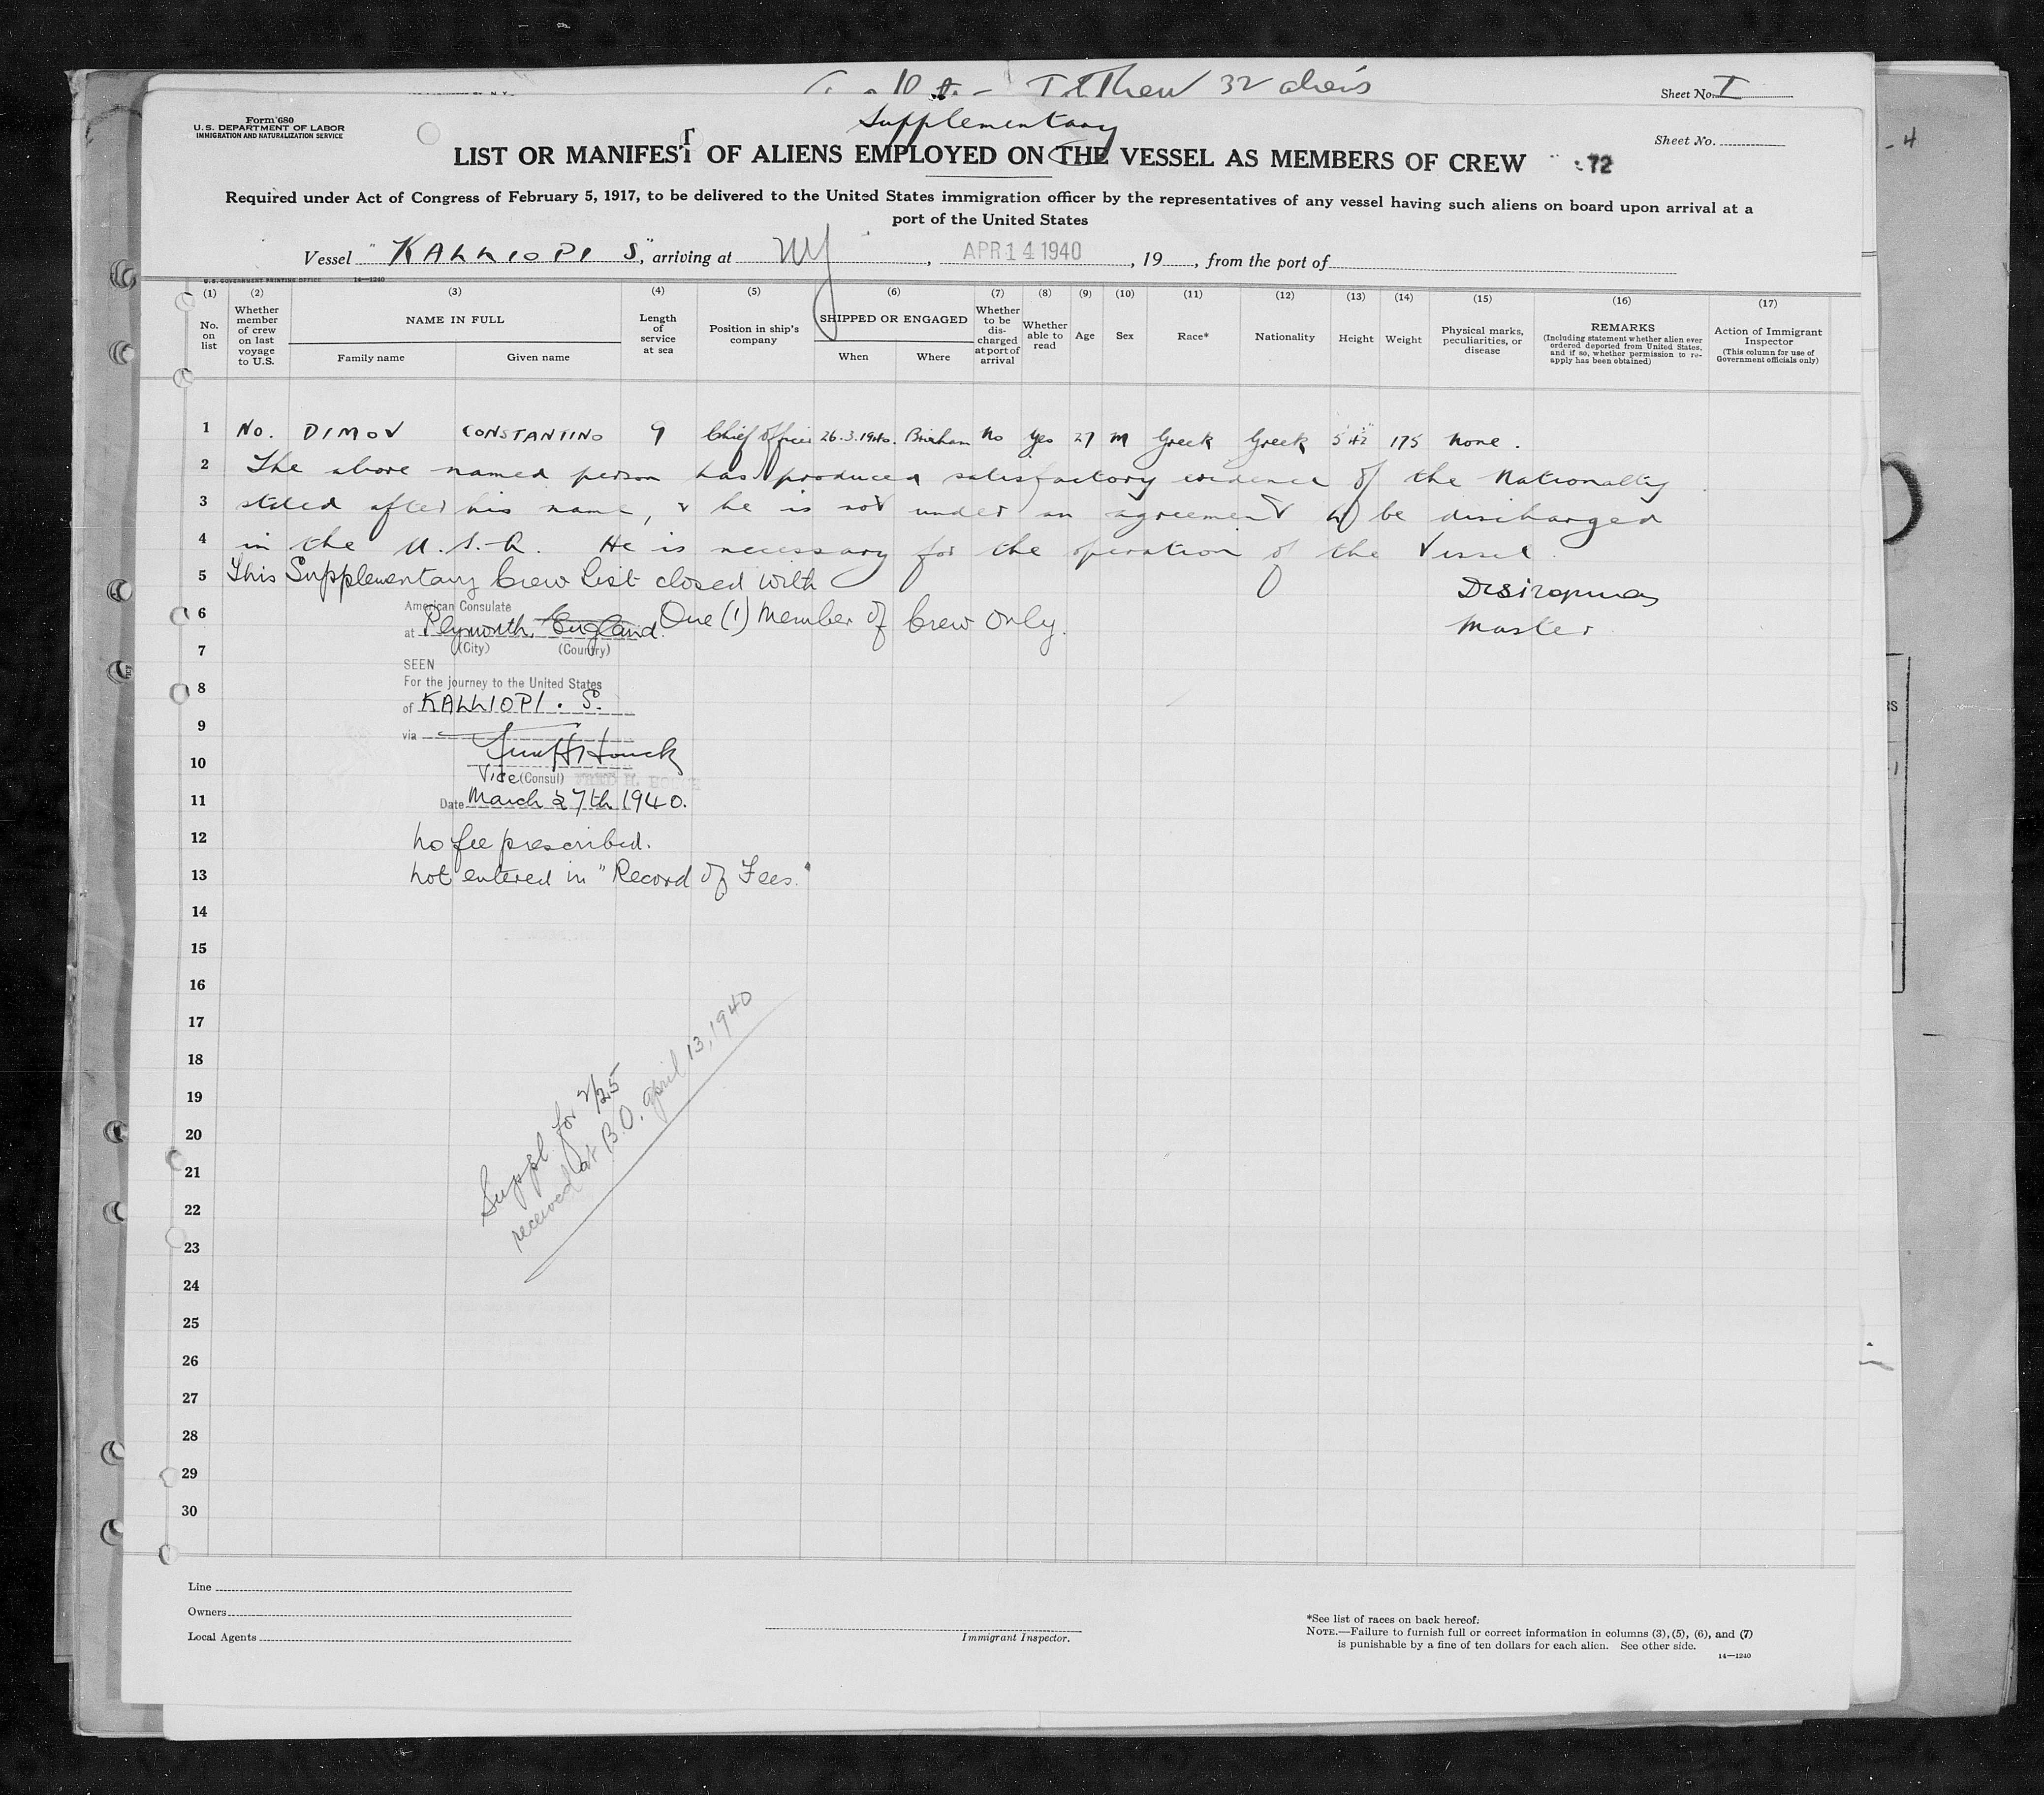 32 aliens
Sheet No. I
Form 680
U.S. DEPARTMENT OF LABOR
IMMIGRATION AND NATURALIZATION SERVICE
Supplementary
Sheet No.
LIST OR MANIFEST OF ALIENS EMPLOYED ON THE VESSEL AS MEMBERS OF CREW
72
Required under Act of Congress of February 5, 1917, to be delivered to the United States immigration officer by the representatives of any vessel having such aliens on board upon arrival at a
port of the United States
Vessel "KALLIOPI S", arriving at NY, APR 14 1940, 19, from the port of
U.S. GOVERNMENT PRINTING OFFICE 14—1240
(1) (2) (3) (4) (5) (6) (7) (8) (9) (10) (11) (12) (13) (14) (15) (16) (17)
No. on list
Whether member of crew on last voyage to U.S.
NAME IN FULL
Family name
Given name
Length of service at sea
Position in ship's company
SHIPPED OR ENGAGED
When
Where
Whether to be discharged at port of arrival
Whether able to read
Age
Sex
Race*
Nationality
Height
Weight
Physical marks, peculiarities, or disease
REMARKS
(Including statement whether alien ever ordered deported from United States, and if so, whether permission to reapply has been obtained)
Action of Immigrant Inspector
(This column for use of Government officials only)
1 No. DIMOV CONSTANTINO 9 Chief Officer 26.3.1940. Brixham No Yes 27 M Greek Greek 175 None.
2 The above named person has produced satisfactory evidence of the Nationality
3 stated after his name, & he is not under an agreement to be discharged
4 in the U.S.A. He is necessary for the operation of the Vessel.
5 This Supplementary Crew List closed with
6 One (1) Member of Crew only.
Master
American Consulate
at Plymouth, England.
(City) (Country)
7
SEEN
For the journey to the United States
8
of KALLIOPI. S.
9
via
10
Fred H Houck
Vice (Consul) FRED H. HOUCK
11
Date March 27th 1940.
12 No fee prescribed.
13 Not entered in "Record of Fees."
14
15
16
17
18
19
20
21
22
23
24
25
26
27
28
29
30
Suppl. for 2/25
received at B.O. April 13, 1940
Line
Owners
Local Agents
Immigrant Inspector.
*See list of races on back hereof.
NOTE.—Failure to furnish full or correct information in columns (3), (5), (6), and (7)
is punishable by a fine of ten dollars for each alien. See other side.
14—1240